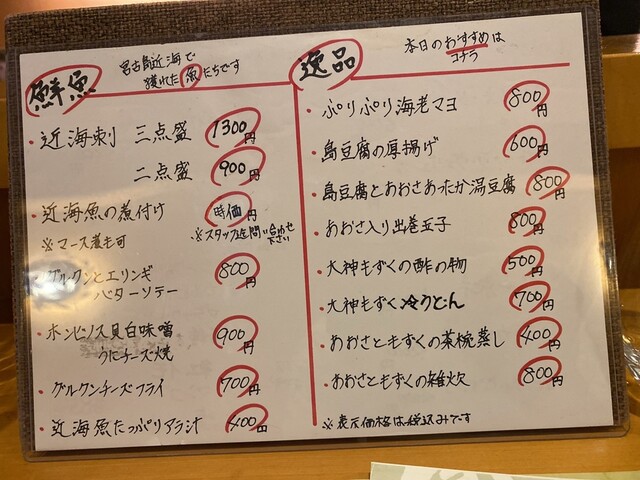 鮮魚
宮古島近海で
獲れた魚たちです
・近海刺 三点盛 1300円
二点盛 900円
・近海魚の煮付け 時価円
※マース煮も可
※スタッフ迄問い合わせ
下さい
・グルクンとエリンギ
バターソテー 800円
・ホンビノス貝白味噌
うにチーズ焼 900円
・グルクンチーズフライ 700円
・近海魚たっぷりアラ汁 400円
逸品
本日のおすすめは
コチラ
・ぷりぷり海老マヨ 800円
・島豆腐の厚揚げ 600円
・島豆腐とあおさあったか湯豆腐 800円
・あおさ入り出巻玉子 800円
・大神もずくの酢の物 500円
・大神もずく冷うどん 700円
・あおさともずくの茶椀蒸し 400円
・あおさともずくの雑炊 800円
※表示価格は税込みです